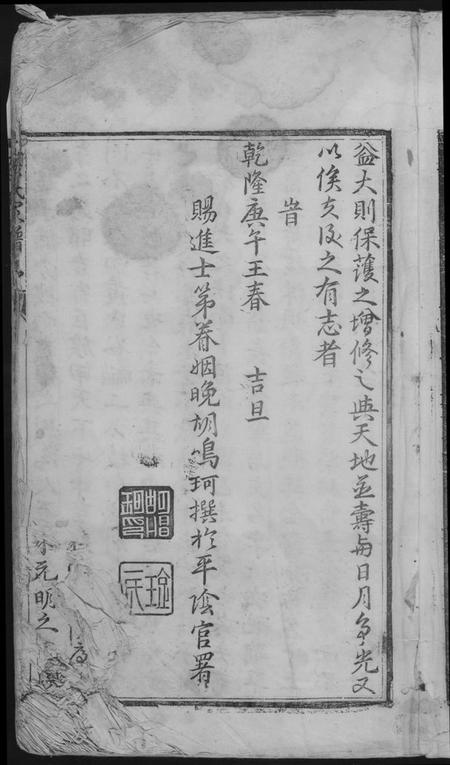 益大則保護之增修之與天地並壽與日月爭光又
以俟夫後之有志者
旹
乾隆庚午王春 吉旦
賜進士第眷姻晚胡鳴珂撰於平陰官署
元明之